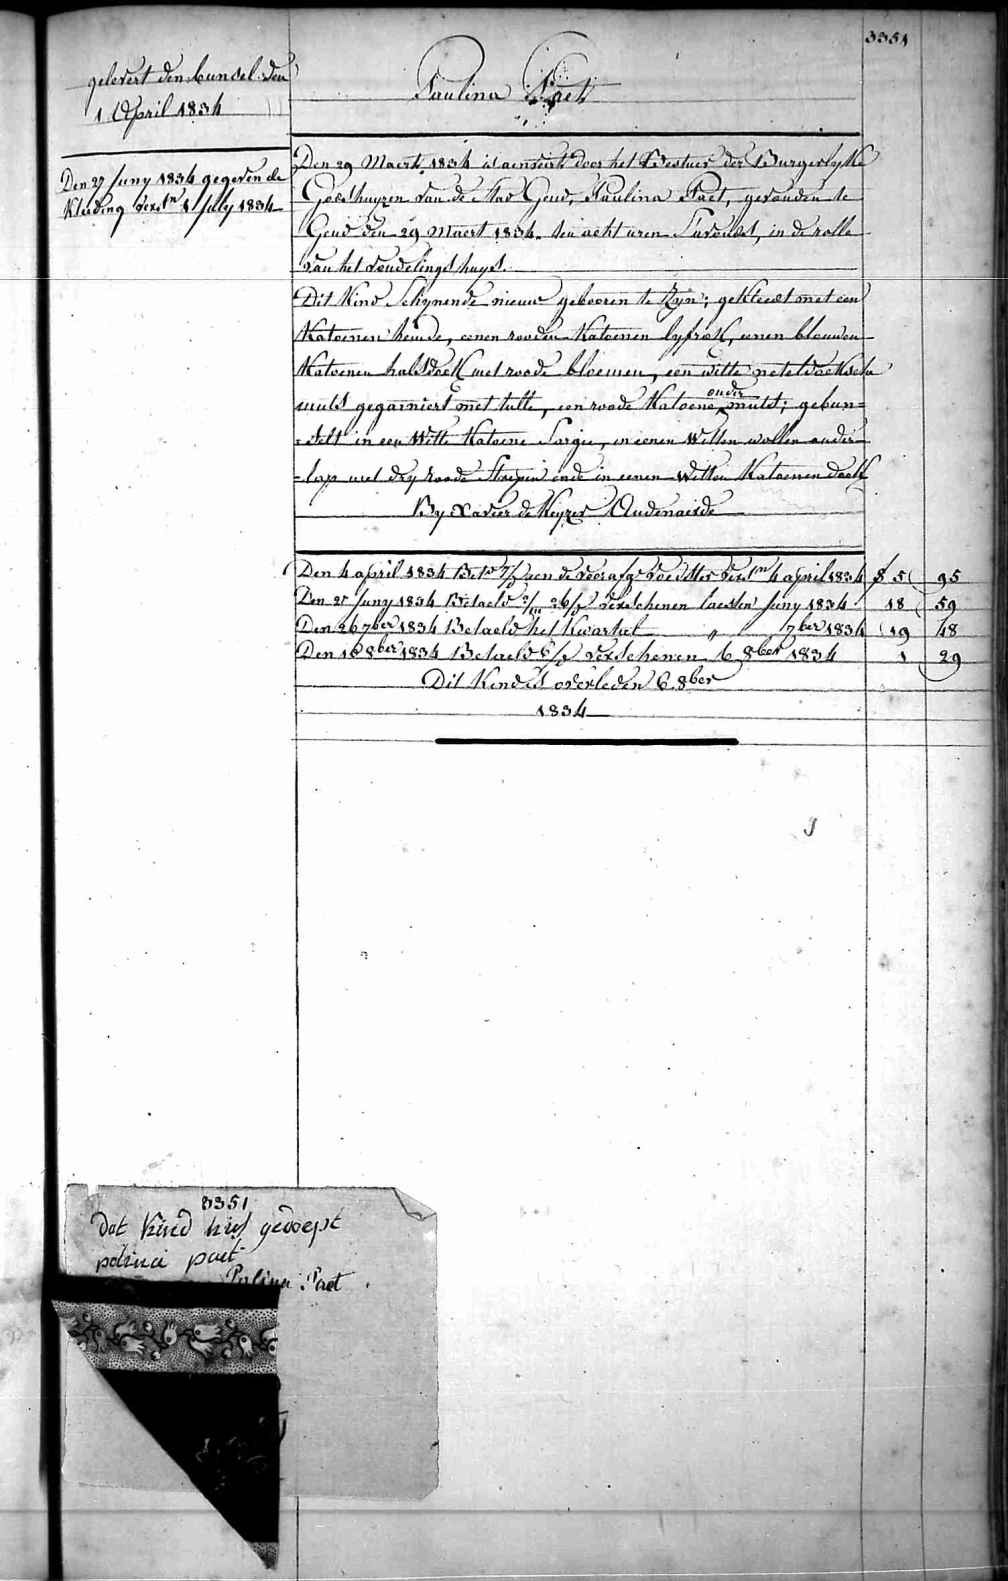 3351
gelevert den bundel den
1 April 1834
Paulina Paet
Den 27 Juny 1834 gegeven de
Kleeding versn 1 July 1834
Den 29 Maerte 1834 is aenveirt door het Bestuer der Burgerlyke
Godshuyzen van de Stad Gend, Paulina Paet, gevonden te
Gend den 29 Maert 1834. ten acht uren S'avonds, in de rolle
van het vondelings huys.
Dit Kind Schynende nieuw gebooren te Zyn; gekleed met een
Katoenen hemde, eenen rooden Katoenen lyfrok, eenen blauwen
Katoenen halsdoek met roode bloemen, een witte neteldoeksche
muts gegarniert met tulle, een roode Katoene onder muts; gebun=
=delt in een Witte Katoene Sargie, in eenen Witten wollen onder
=lap met dry roode Strepen ende in eenen Witten Katoenen doek
By Xavier de Keyzer Audenaerde
Den 4 april 1834 aen de voedster versn 4 april 1834 f 5 95
Den 27 Juny 1834 Betaeld verschenen laesten Juny 1834 18 59
Den 26 7ber 1834 Betaeld het Kwartiel " 7ber 1834 19 48
Den 16 8ber 1834 Betaeld verschenen 6 8ber 1834 1 29
Dit Kind is overleden 6 8ber
1834
3351
dat kind hies gedoept
polina paet
Polina Paet